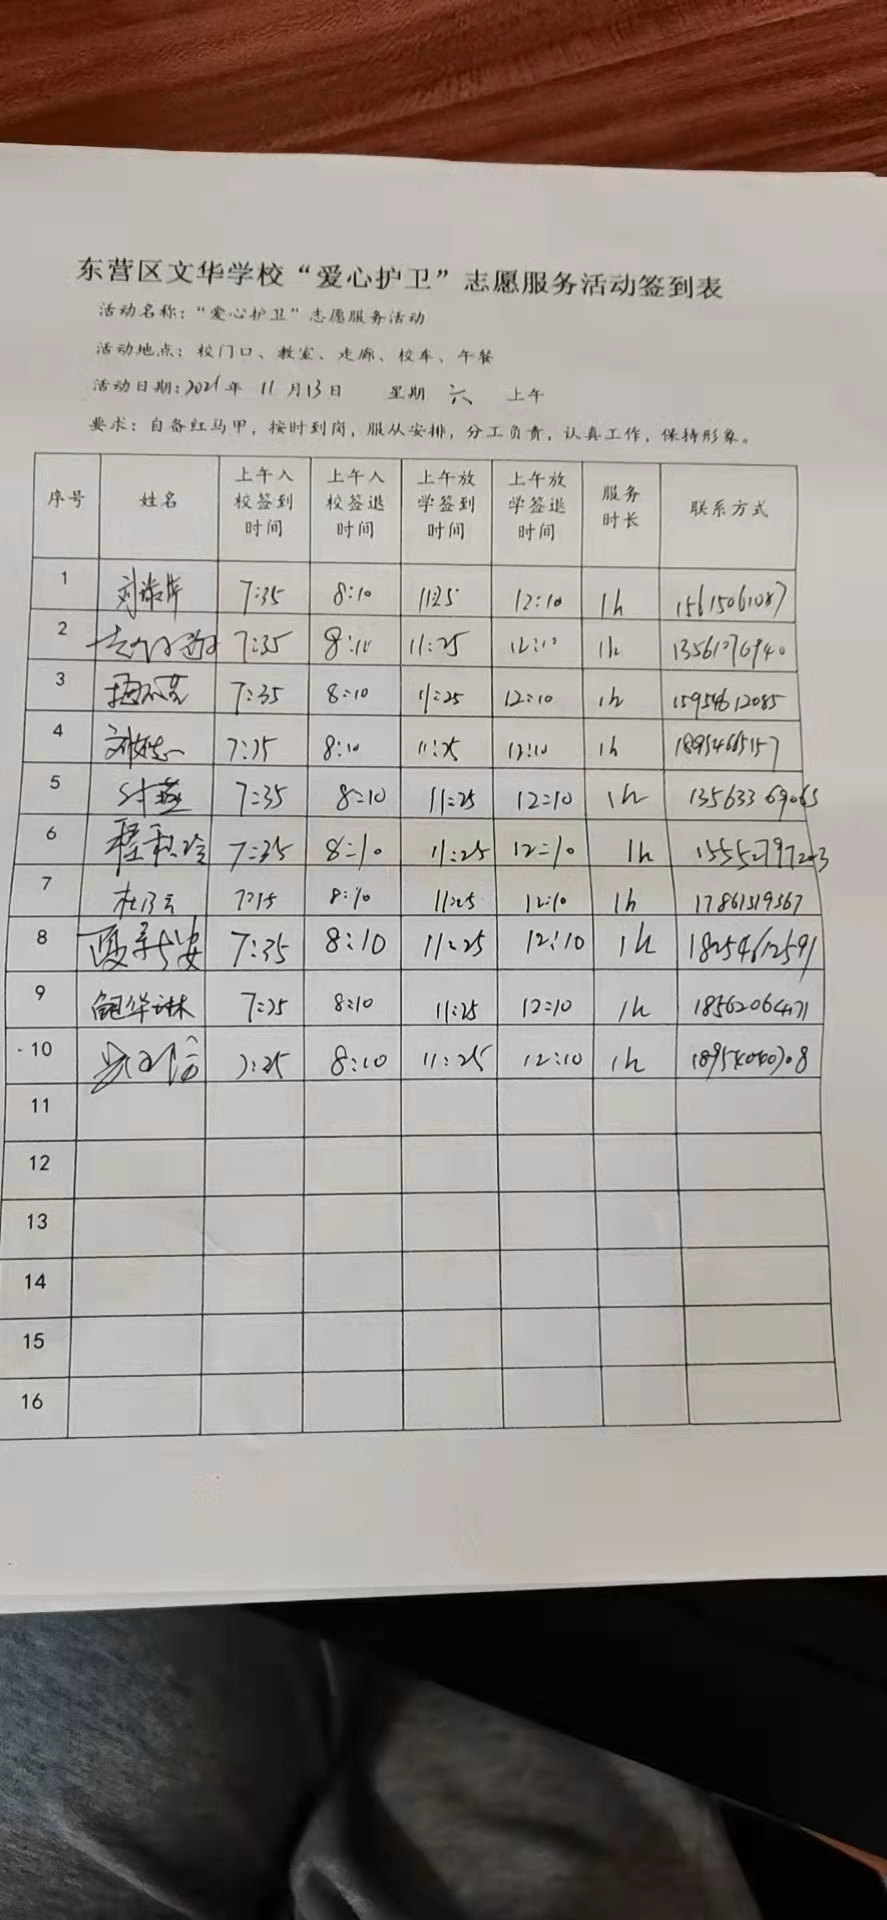 东营区文华学校“爱心护卫”志愿服务活动签到表
活动名称：“爱心护卫”志愿服务活动
活动地点：校门口、教室、走廊、校车、午餐
活动日期：2021年 11月13日 星期 六 上午
要求：自备红马甲，按时到岗，服从安排，分工负责，认真工作，保持形象。
序号 姓名 上午入校签到时间 上午入校签退时间 上午放学签到时间 上午放学签退时间 服务时长 联系方式
1 7:35 8:10 11:25 12:10 1h 15615061087
2 7:35 8:10 11:25 12:10 1h
3 7:35 8:10 11:25 12:10 1h 15954612085
4 7:35 8:10 11:25 12:10 1h 18954665157
5 7:35 8:10 11:25 12:10 1h 13563369065
6 7:35 8:10 11:25 12:10 1h 15552797203
7 8:10 11:25 12:10 1h 17861519367
8 7:35 8:10 11:25 12:10 1h 18254612591
9 鲍华琳 7:25 8:10 11:25 12:10 1h 18562064171
10 7:25 8:10 11:25 12:10 1h
11
12
13
14
15
16